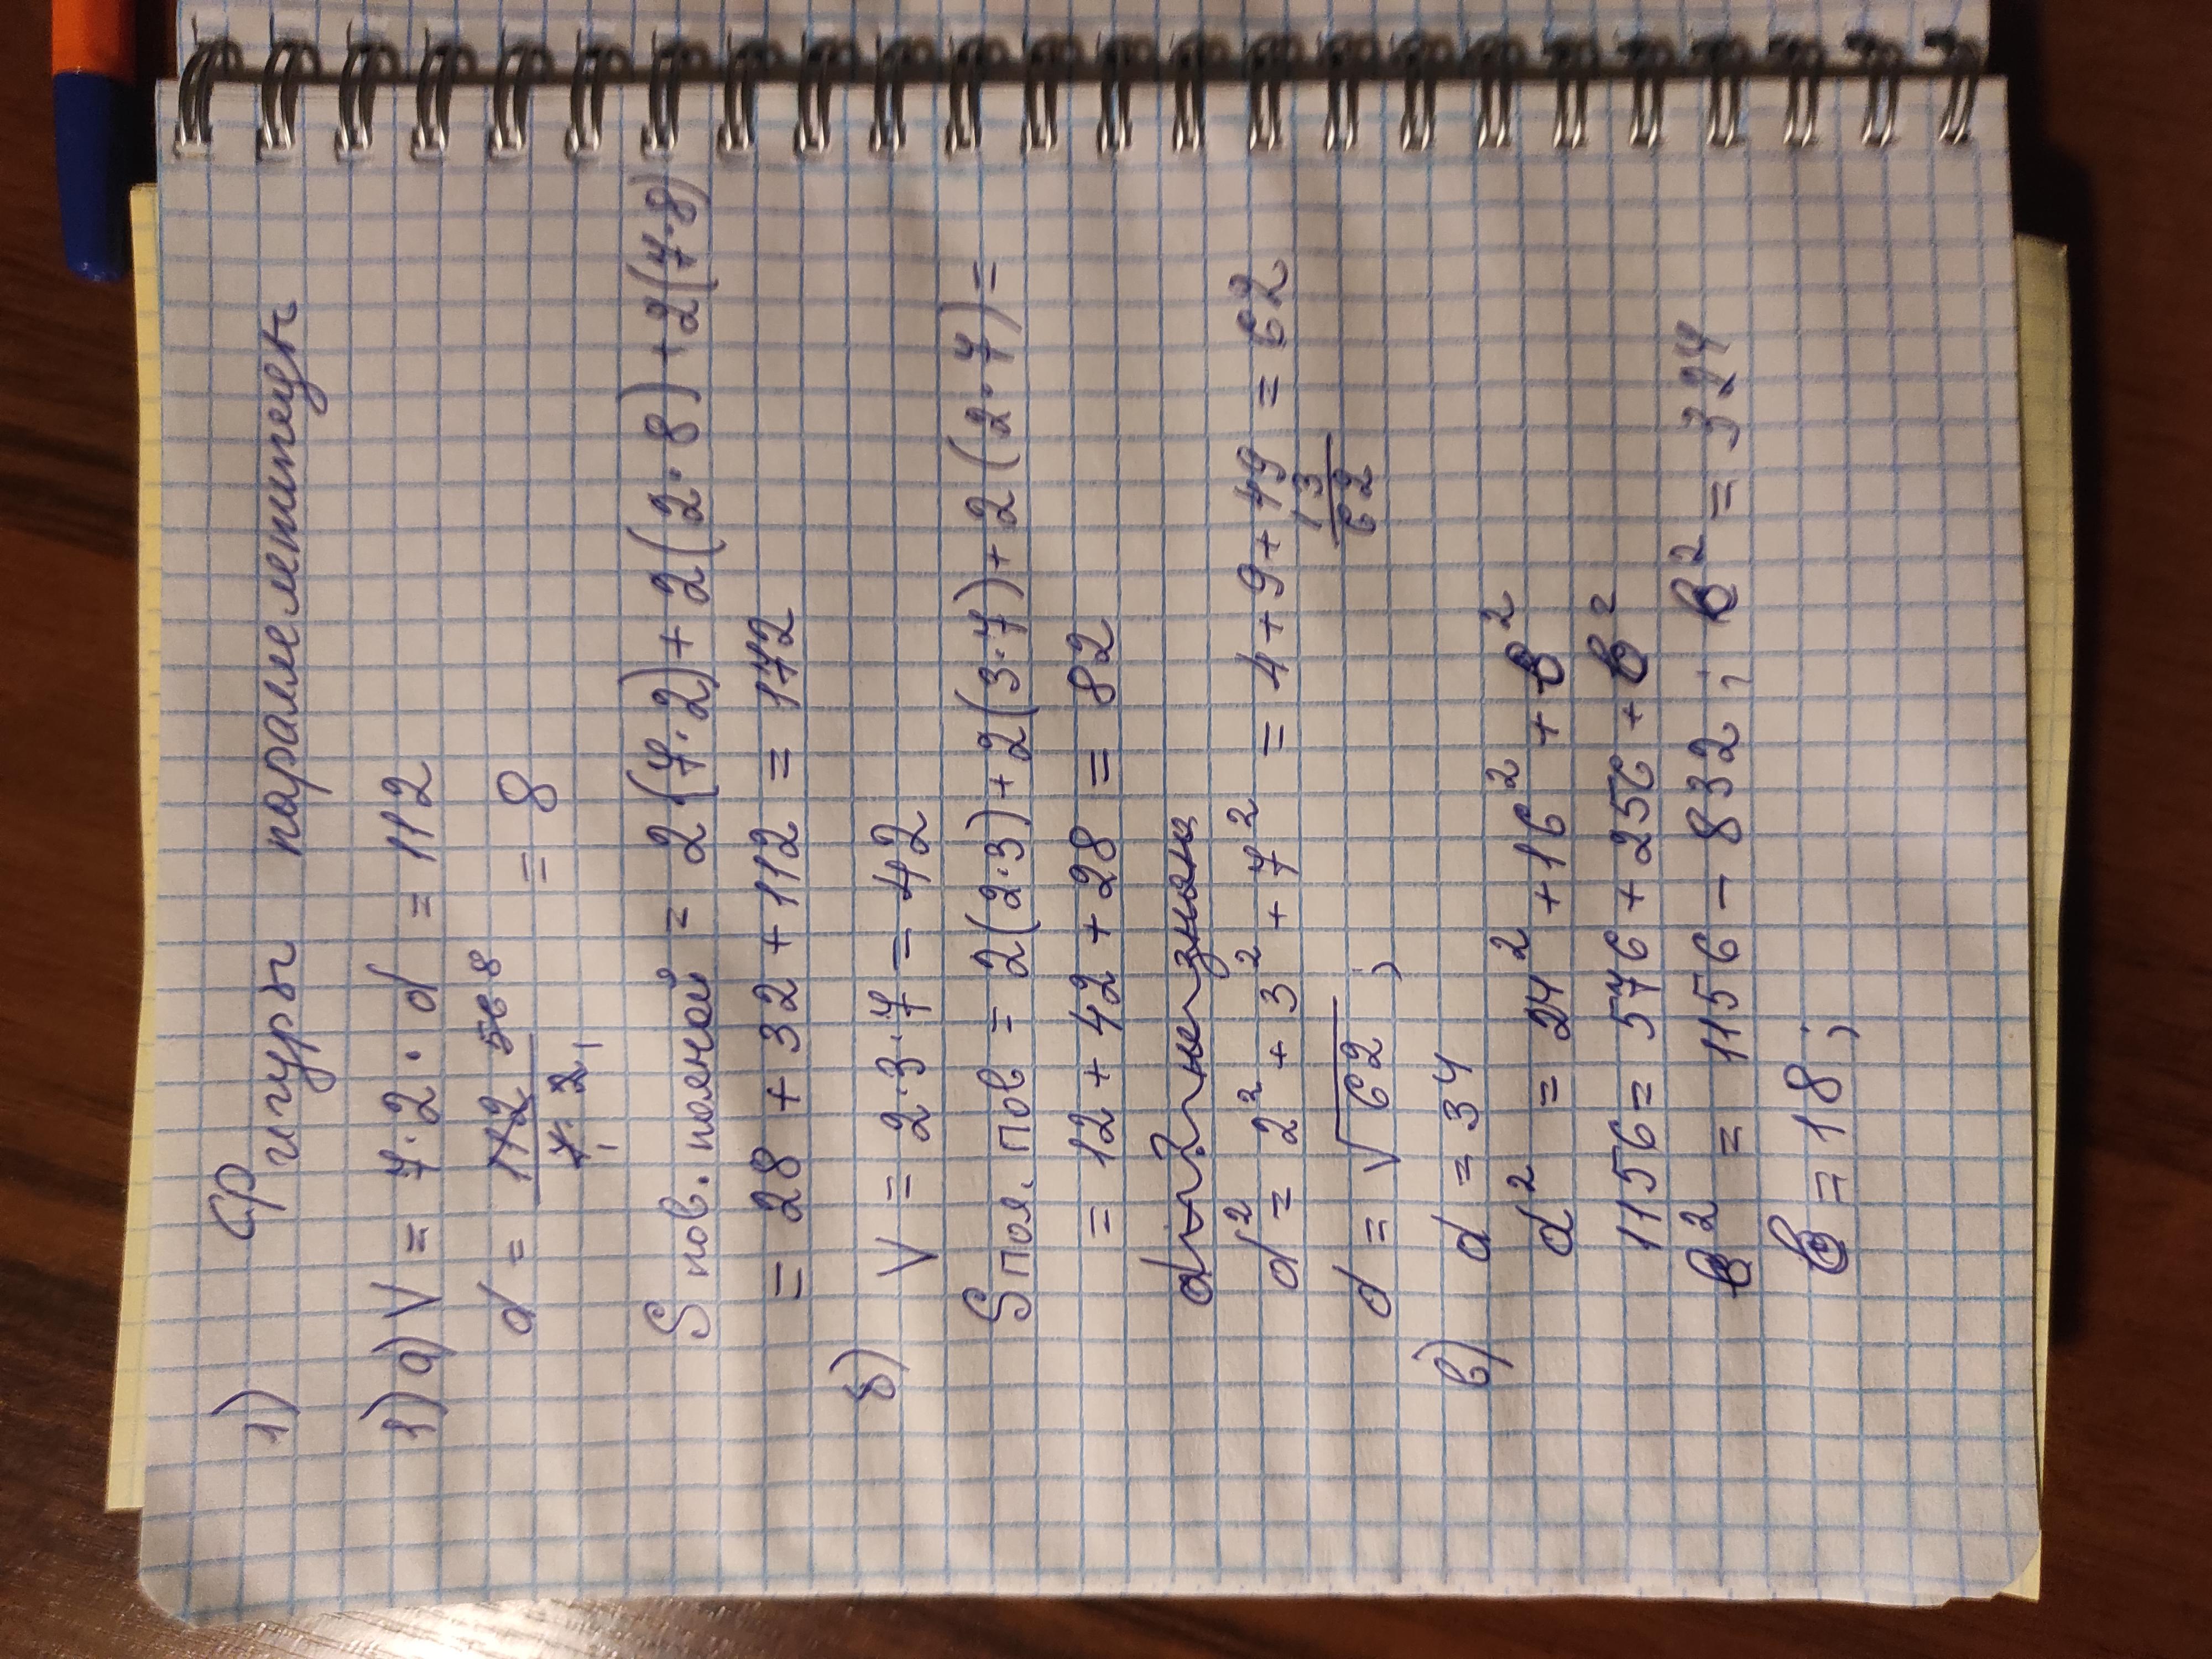 1) Фигуры параллепипеды
1) а) V = 7·2·d = 112
d = 112 56 8 / 7·2 1 1 = 8
S пов. полной = 2(7·2)+2(2·8)+2(7·8)
= 28+32+112 = 172
б) V = 2·3·7 = 42
S пол. пов = 2(2·3)+2(3·7)+2(2·7)=
= 12+42+28 = 82
d - ? не знаю
d² = 2²+3²+7² = 4+9+49 = 62
13
62
d = √62 ;
в) d = 34
d² = 24²+16²+в²
1156 = 576+256+в²
в² = 1156 - 832 ; в² = 324
в = 18 ;